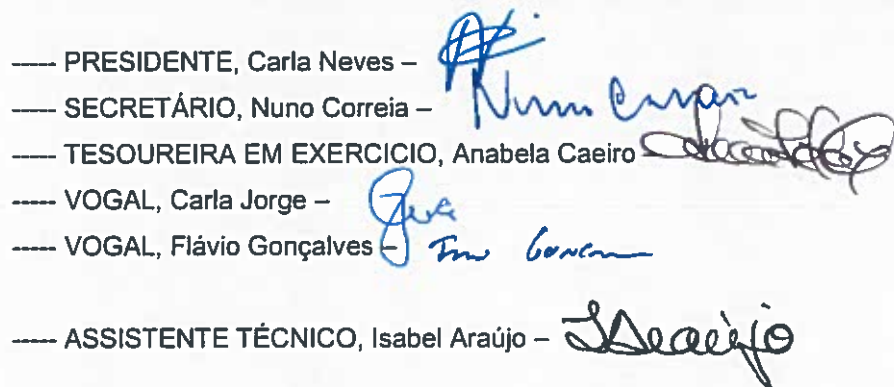 ----- PRESIDENTE, Carla Neves –
----- SECRETÁRIO, Nuno Correia – Nuno Correia
----- TESOUREIRA EM EXERCICIO, Anabela Caeiro –
----- VOGAL, Carla Jorge –
----- VOGAL, Flávio Gonçalves –
----- ASSISTENTE TÉCNICO, Isabel Araújo – IAraújo